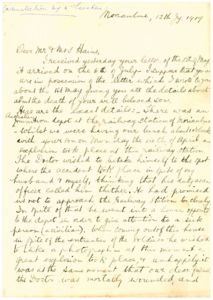 (translation by a teacher)
Moramba, 12th/7 1919
Dear Mr & Mrs Haine,
I received yesterday your letter of the 19th May
It arrived on the 6th of July. I suppose that you
are in possession of the letter which I wrote to you
about the 1st May giving you all the details about
the death of your beloved son.
Here are the exact details. There was an
ammunition depot at the railway station of
whilst we were having our lunch
with on Monday the of April an
explosion took place at the railway station.
The Doctor wished to betake himself to the spot
where the accident took place in spite of my
husband & myself, thinking that his
officer called him thither. He had promised
us not to approach the Railway station too closely.
In spite of that he went into a house opposite
the depot in order to give attention to a sick
person (civilian). When coming out of this house
in spite of the sentinels of the soldiers he wished
to take a photograph. At this moment a
great explosion took place, & unhappily it
was at the same moment that our dear friend
the Doctor was mortally wounded, and